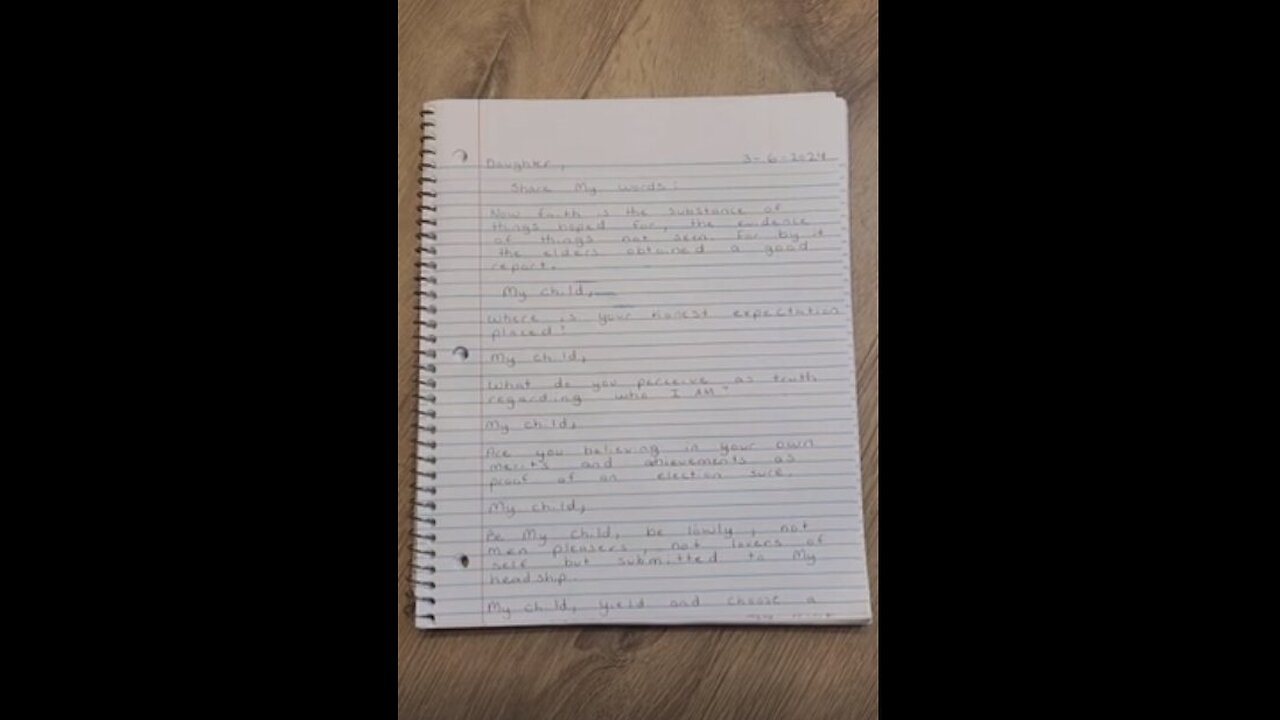 Daughter, 3-6-2024
Share My words:
Now faith is the substance of
things hoped for, the evidence
of things not seen. For by it
the elders obtained a good
report.
My child,
Where is your honest expectation
placed?
My child,
What do you perceive as truth
regarding who I AM?
My child,
Are you believing in your own
merits and achievements as
proof of an election sure.
My child,
Be My child, be lowly, not
men pleasers, not lovers of
self but submitted to My
headship.
My child, yield and choose a